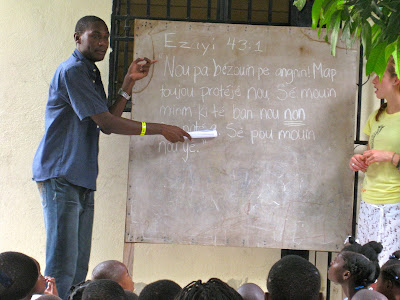 Eziyi 43:1
Nou pa bezwin pè anyin! Map
toujou protéjé nou Sé moun
minm ki té ban nou non
Sé pou mouin
nou yé.